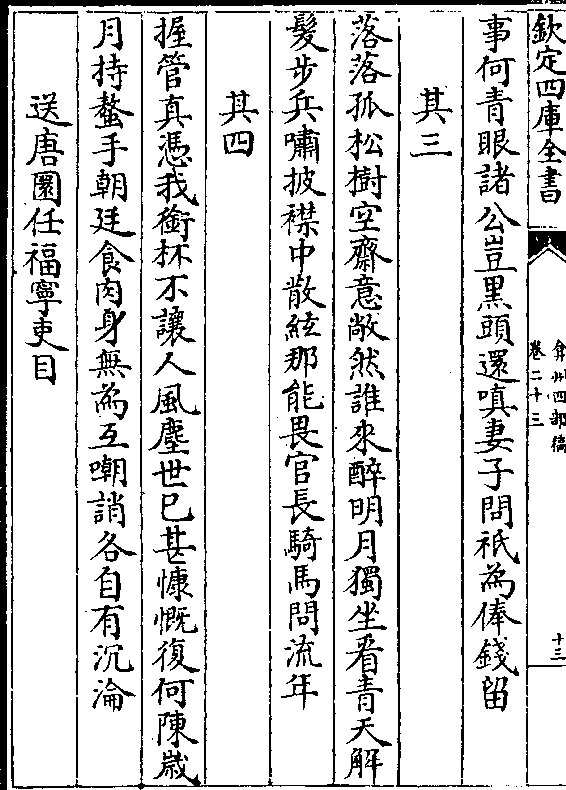 欽定四庫全書
弇州四部稿
卷二十三
十三
事何青眼諸公豈黒頭還嗔妻子問祇為俸錢留
其三
落落孤松樹空齋意敞然誰來醉明月獨坐看青天解
髮步兵嘯披襟中散絃那能畏官長騎馬問流年
其四
握管真憑我銜杯不讓人風塵世已甚慷慨復何陳歲
月持螯手朝廷食肉身無為互嘲誚各自有沉淪
送唐園任福寧吏目